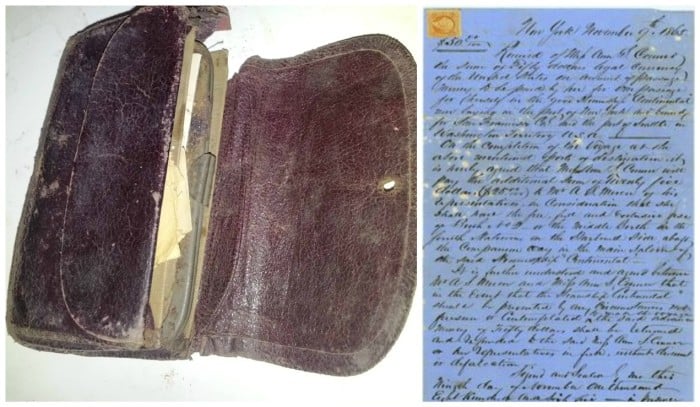 New York November 9th 1865
$50.00/100
Received of Miss Ann S. Connor
the sum of Fifty Dollars legal currency
of the United States on account of passage
Money to be paid by her for one passage
for herself in the good Steamship Continental
now laying in the port of New York and bound
for San Francisco Cal and the port of Seattle in
Washington Territory U.S.A.
On the Completion of the Voyage at the
above mentioned ports of destination it
is hereby agreed that Miss Ann S. Connor will
pay the additional sum of Twenty five
dollars ($25.00/100) to Mr A. S. or his
representatives in Consideration that she
shall have the free, full and exclusive use
of Berth No 2 or the middle Berth in the
fourth Stateroom on the Starboard Side
the Companion way in the main Saloon of
the said Steamship Continental
It is further understood and agreed between
Mr A. S. and Miss Ann S. Connor that
in the Event that the Steamship Continental
should be prevented by any Circumstances
present or Contemplated the said
Money of Fifty dollars shall be returned
and refunded to the said Miss Ann S. Connor
or her Representatives in full, without discount
or defalcation
Signed and Sealed by me this
Ninth day of November One thousand
Eight Hundred and Sixty five